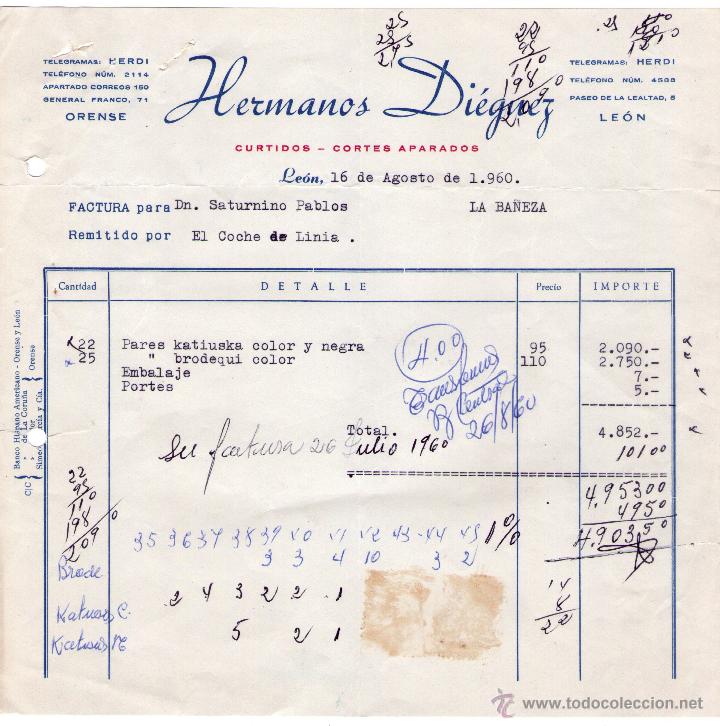 25
25
22
95
110
198
2.090
TELEGRAMAS: HERDI
TELÉFONO NÚM. 2114
APARTADO CORREOS 150
GENERAL FRANCO, 71
ORENSE
Hermanos Diéguez
TELEGRAMAS: HERDI
TELÉFONO NÚM. 4588
PASEO DE LA LEALTAD, 5
LEÓN
CURTIDOS - CORTES APARADOS
León, 16 de Agosto de 1.960.
FACTURA para Dn. Saturnino Pablos LA BAÑEZA
Remitido por El Coche de Linia .
Cantidad DETALLE Precio IMPORTE
22 Pares katiuska color y negra 95 2.090.-
25 " brodequi color 110 2.750.-
Embalaje 7.-
Portes 5.-
4.00
26/8/60
Total. 4.852.-
su factura 26 Julio 1960 101 00
4.953 00
49 50
4.903 50
Banco Hispano Americano - Orense y León
de La Coruña
C/C
Orense
22
95
110
198
2090
35 36 37 38 39 40 41 42 43 44 45 1%
3 3 4 10 3 2
Brode
Katiuscas C. 2 4 3 2 2 1
5 2 1
14
8
22
todocoleccion
www.todocoleccion.net